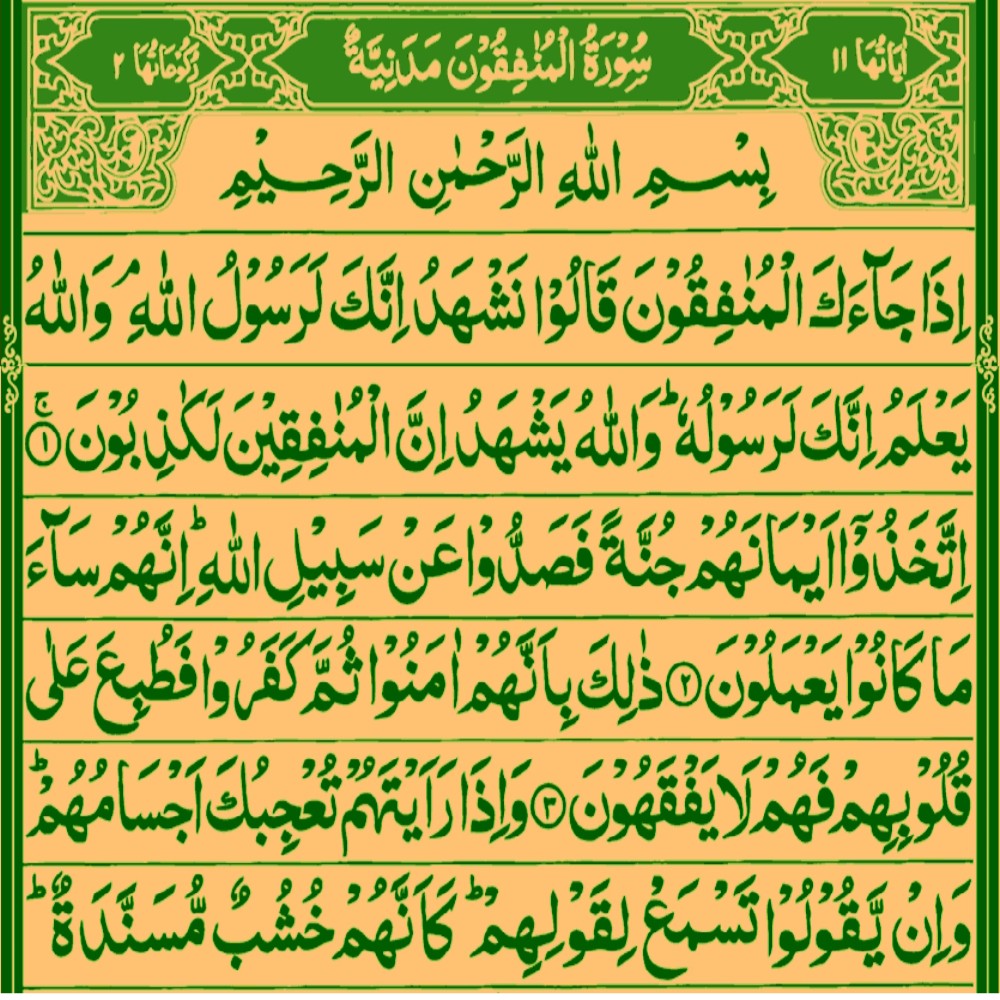 اٰيَاتُهَا ۱۱ سُوْرَةُ الْمُنٰفِقُوْنَ مَدَنِيَّةٌ رُكُوْعَاتُهَا ۲
بِسْمِ اللّٰهِ الرَّحْمٰنِ الرَّحِيْمِ
اِذَا جَآءَكَ الْمُنٰفِقُوْنَ قَالُوْا نَشْهَدُ اِنَّكَ لَرَسُوْلُ اللّٰهِ ۘ وَاللّٰهُ
يَعْلَمُ اِنَّكَ لَرَسُوْلُهٗ ؕ وَاللّٰهُ يَشْهَدُ اِنَّ الْمُنٰفِقِيْنَ لَكٰذِبُوْنَ ۚ ۝۱
اِتَّخَذُوْۤا اَيْمَانَهُمْ جُنَّةً فَصَدُّوْا عَنْ سَبِيْلِ اللّٰهِ ؕ اِنَّهُمْ سَآءَ
مَا كَانُوْا يَعْمَلُوْنَ ۝۲ ذٰلِكَ بِاَنَّهُمْ اٰمَنُوْا ثُمَّ كَفَرُوْا فَطُبِعَ عَلٰى
قُلُوْبِهِمْ فَهُمْ لَا يَفْقَهُوْنَ ۝۳ وَاِذَا رَاَيْتَهُمْ تُعْجِبُكَ اَجْسَامُهُمْ ؕ
وَاِنْ يَّقُوْلُوْا تَسْمَعْ لِقَوْلِهِمْ ؕ كَاَنَّهُمْ خُشُبٌ مُّسَنَّدَةٌ ؕ